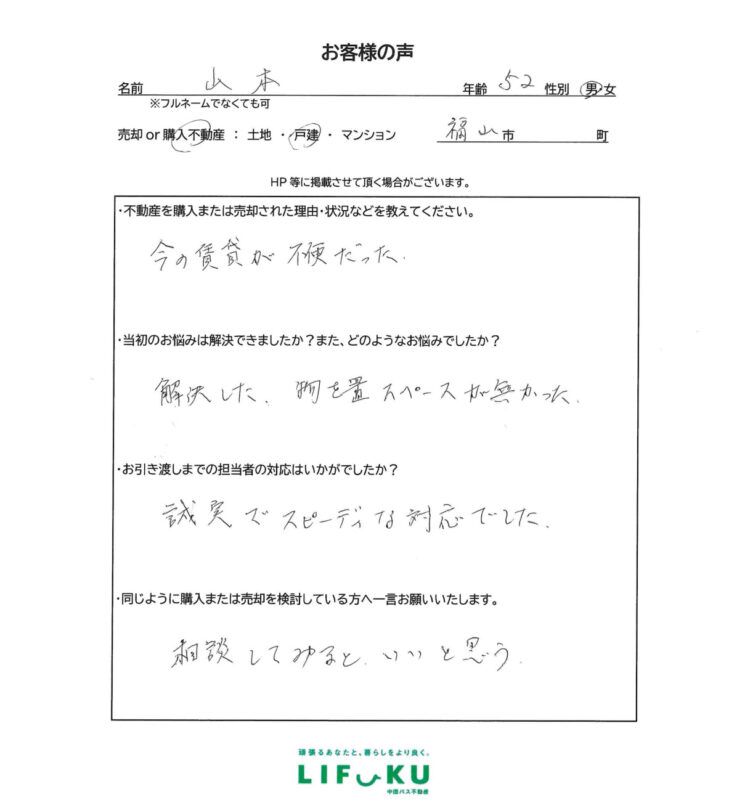 お客様の声
名前 山本 年齢 52 性別 男・女
※フルネームでなくても可
売却or購入不動産：土地・戸建・マンション 福山市 町
HP等に掲載させて頂く場合がございます。
・不動産を購入または売却された理由・状況などを教えてください。
今の賃貸が不便だった.
・当初のお悩みは解決できましたか？また、どのようなお悩みでしたか？
解決した. 物を置スペースが無かった.
・お引き渡しまでの担当者の対応はいかがでしたか？
誠実でスピーディな対応でした.
・同じように購入または売却を検討している方へ一言お願いいたします。
相談してみると.いいと思う.
頑張るあなたと、暮らしをより良く。
LIFUKU
中国バス不動産